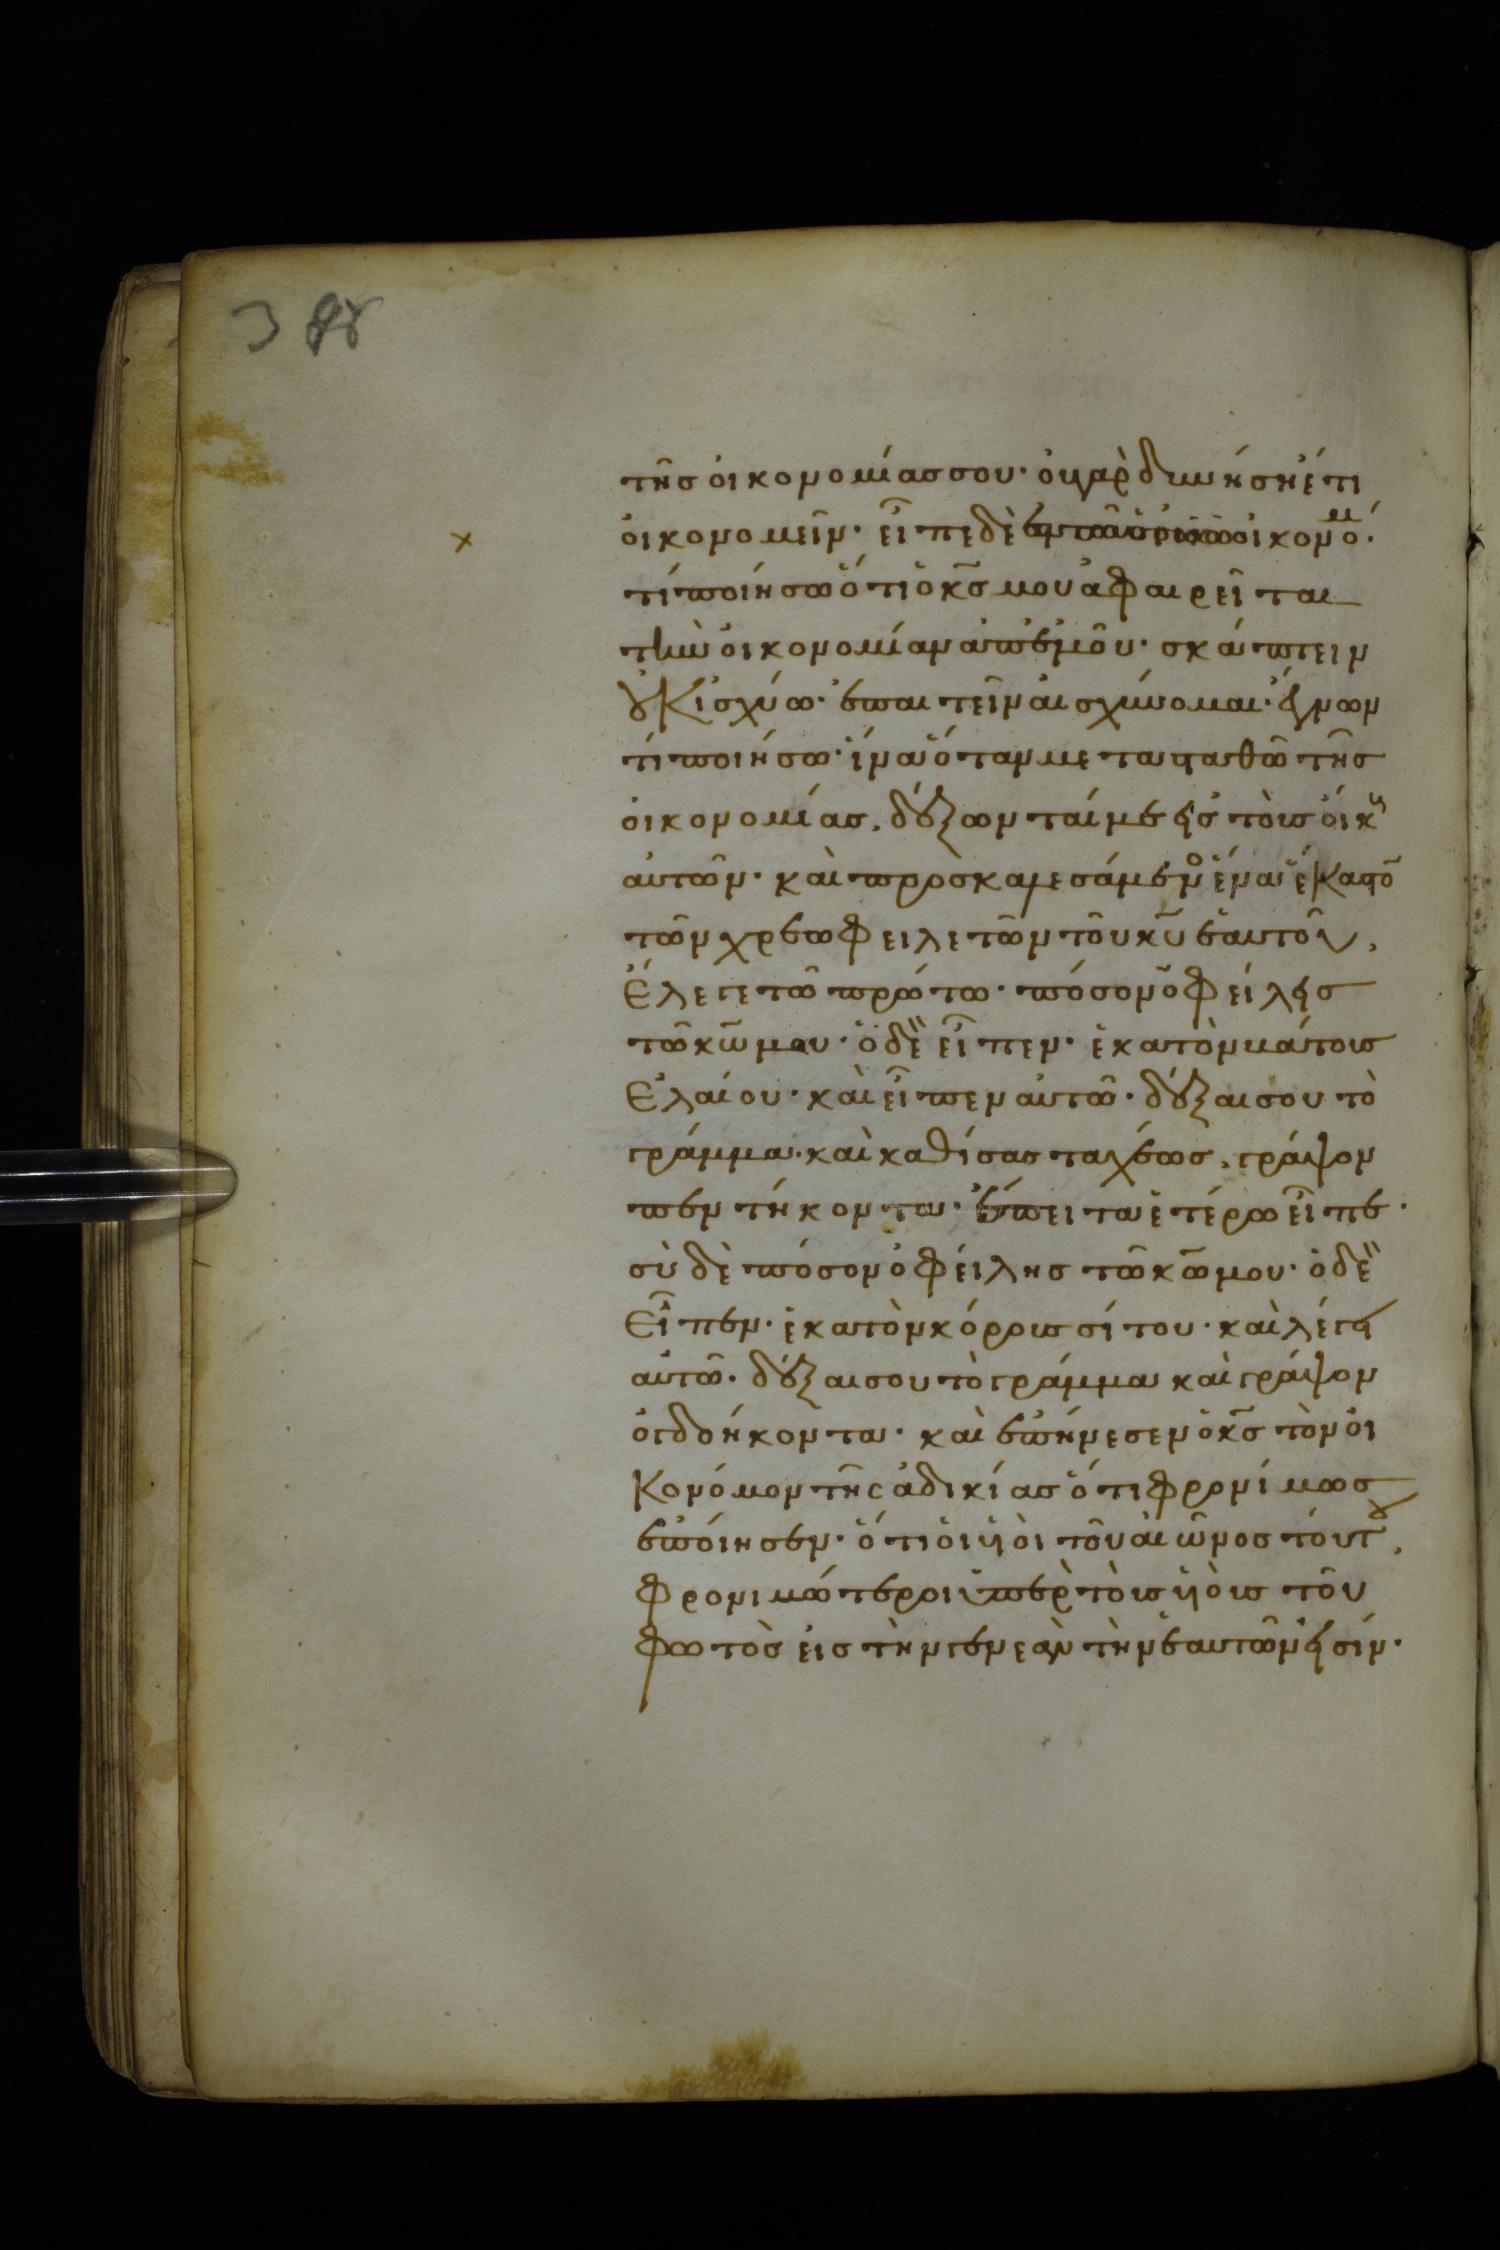 τῆς οἰκονομίας σου· οὐ γὰρ δυνήσῃ ἔτι
οἰκονομεῖν· εἶπε δὲ ἐν ἑαυτῷ ὁ οἰκονόμο·
τί ποιήσω ὅτι ὁ κ̅ς̅ μου ἀφαιρεῖται
τὴν οἰκονομίαν ἀπ' ἐμοῦ· σκάπτειν
οὐκ ἰσχύω· ἐπαιτεῖν αἰσχύνομαι· ἔγνων
τί ποιήσω· ἵνα ὅταν μετασταθῶ τῆς
οἰκονομίας, δέξωνταί με εἰς τοὺς οἴκους
αὐτῶν· καὶ προσκαλεσάμενος ἕνα ἕκαστον
τῶν χρεωφειλετῶν τοῦ κ̅υ̅ ἑαυτοῦ,
ἔλεγε τῷ πρώτω· πόσον ὀφείλεις
τῷ κ̅ω̅ μου· ὁ δὲ εἶπεν· ἑκατὸν βάτους
ἐλαίου· καὶ εἶπεν αὐτῷ· δέξαι σου τὸ
γράμμα· καὶ καθίσας ταχέως, γράψον
πεντήκοντα· ἔπειτα ἑτέρω εἶπε·
σὺ δὲ πόσον ὀφείλης τῷ κ̅ω̅ μου· ὁ δὲ
εἶπεν· ἑκατὸν κόρους σίτου· καὶ λέγει
αὐτῷ· δέξαι σου τὸ γράμμα καὶ γράψον
ὀγδοήκοντα· καὶ ἐπήνεσεν ὁ κ̅ς̅ τὸν οἰ
κονόμον τῆς ἀδικίας ὅτι φρονίμως
ἐποίησεν· ὅτι οἱ υἱοὶ τοῦ αἰῶνος τούτου,
φρονιμώτεροι ὑπὲρ τοὺς υἱοὺς τοῦ
φωτὸς εἰς τὴν γενεὰν τὴν ἑαυτῶν εἰσίν·